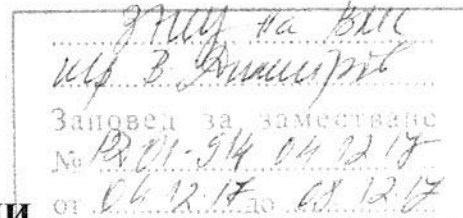 на ВиК
инж В. Димитров
Заповед за заместване
№ РД 01-914 04 12 17
от 04.12.17 до 08.12.17
ИИ